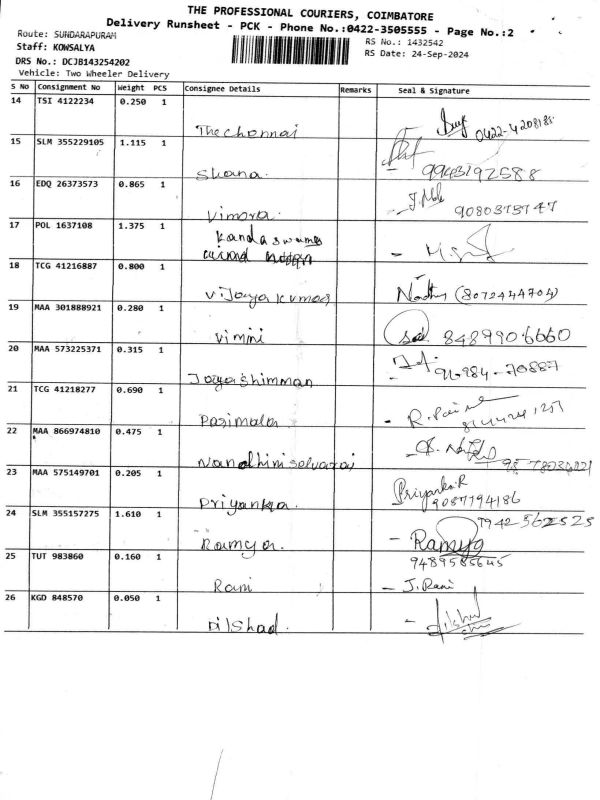 THE PROFESSIONAL COURIERS, COIMBATORE
Delivery Runsheet - PCK - Phone No.:0422-3505555 - Page No.:2
Route: SUNDARAPURAM
Staff: KOWSALYA
RS No.: 1432542
DRS No.: DCJB143254202
RS Date: 24-Sep-2024
Vehicle: Two Wheeler Delivery
S No Consignment No Weight PCS Consignee Details Remarks Seal & Signature
14 TSI 4122234 0.250 1
The chennai
15 SLM 355229105 1.115 1
Shana
9943192588
16 EDQ 26373573 0.865 1
9080373747
17 POL 1637108 1.375 1
Kandaswamy
18 TCG 41216887 0.800 1
Vijayakumar (8072444704)
19 MAA 301888921 0.280 1
Vimini 8489906660
20 MAA 573225371 0.315 1
96984-70887
21 TCG 41218277 0.690 1
Parimala
22 MAA 866974810 0.475 1
Nandhiniselvaraj
23 MAA 575149701 0.205 1
Priyanka.R
9087794186
Priyanka
24 SLM 355157275 1.610 1
7942562525
Ramya. - Ramya
25 TUT 983860 0.160 1
9489585645
Rani - J. Rani
26 KGD 848570 0.050 1
Dilshad.